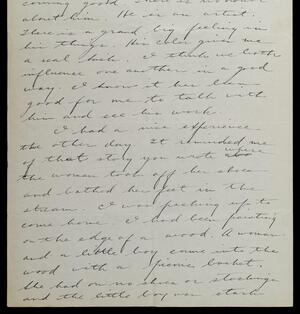 coming good. There is no humor
about him. He is an artist.
There is a grand big feeling in
his things. His color gives me
a real kick. I think we both
influence one another in a good
way. I know it has been
good for me to talk with
him and see his work.
I had a nice experience
the other day. It reminded me
of that story you wrote where
the woman took off her shoes
and bathed her feet in the
stream. I was packing up to
come home. I had been painting
on the edge of a wood. A woman
and a little boy came into the
wood with a picnic basket.
She had on no shoes or stockings
and the little boy was stark